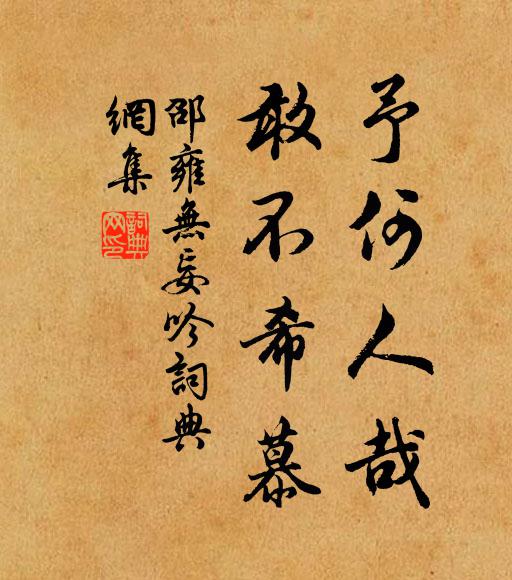 予何人哉
敢不希慕
邵雍無妄吟詞典
網集
詞典
网印